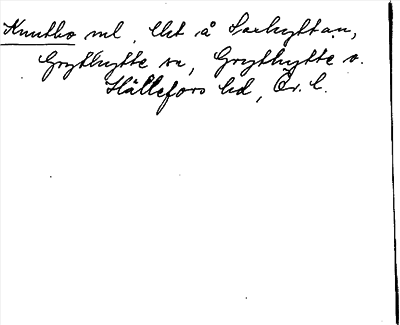 Knutbo ml. Ust å Saxhyttan,
Grythytte sn, Grythytte o.
Hällefors hd, Ör. l.